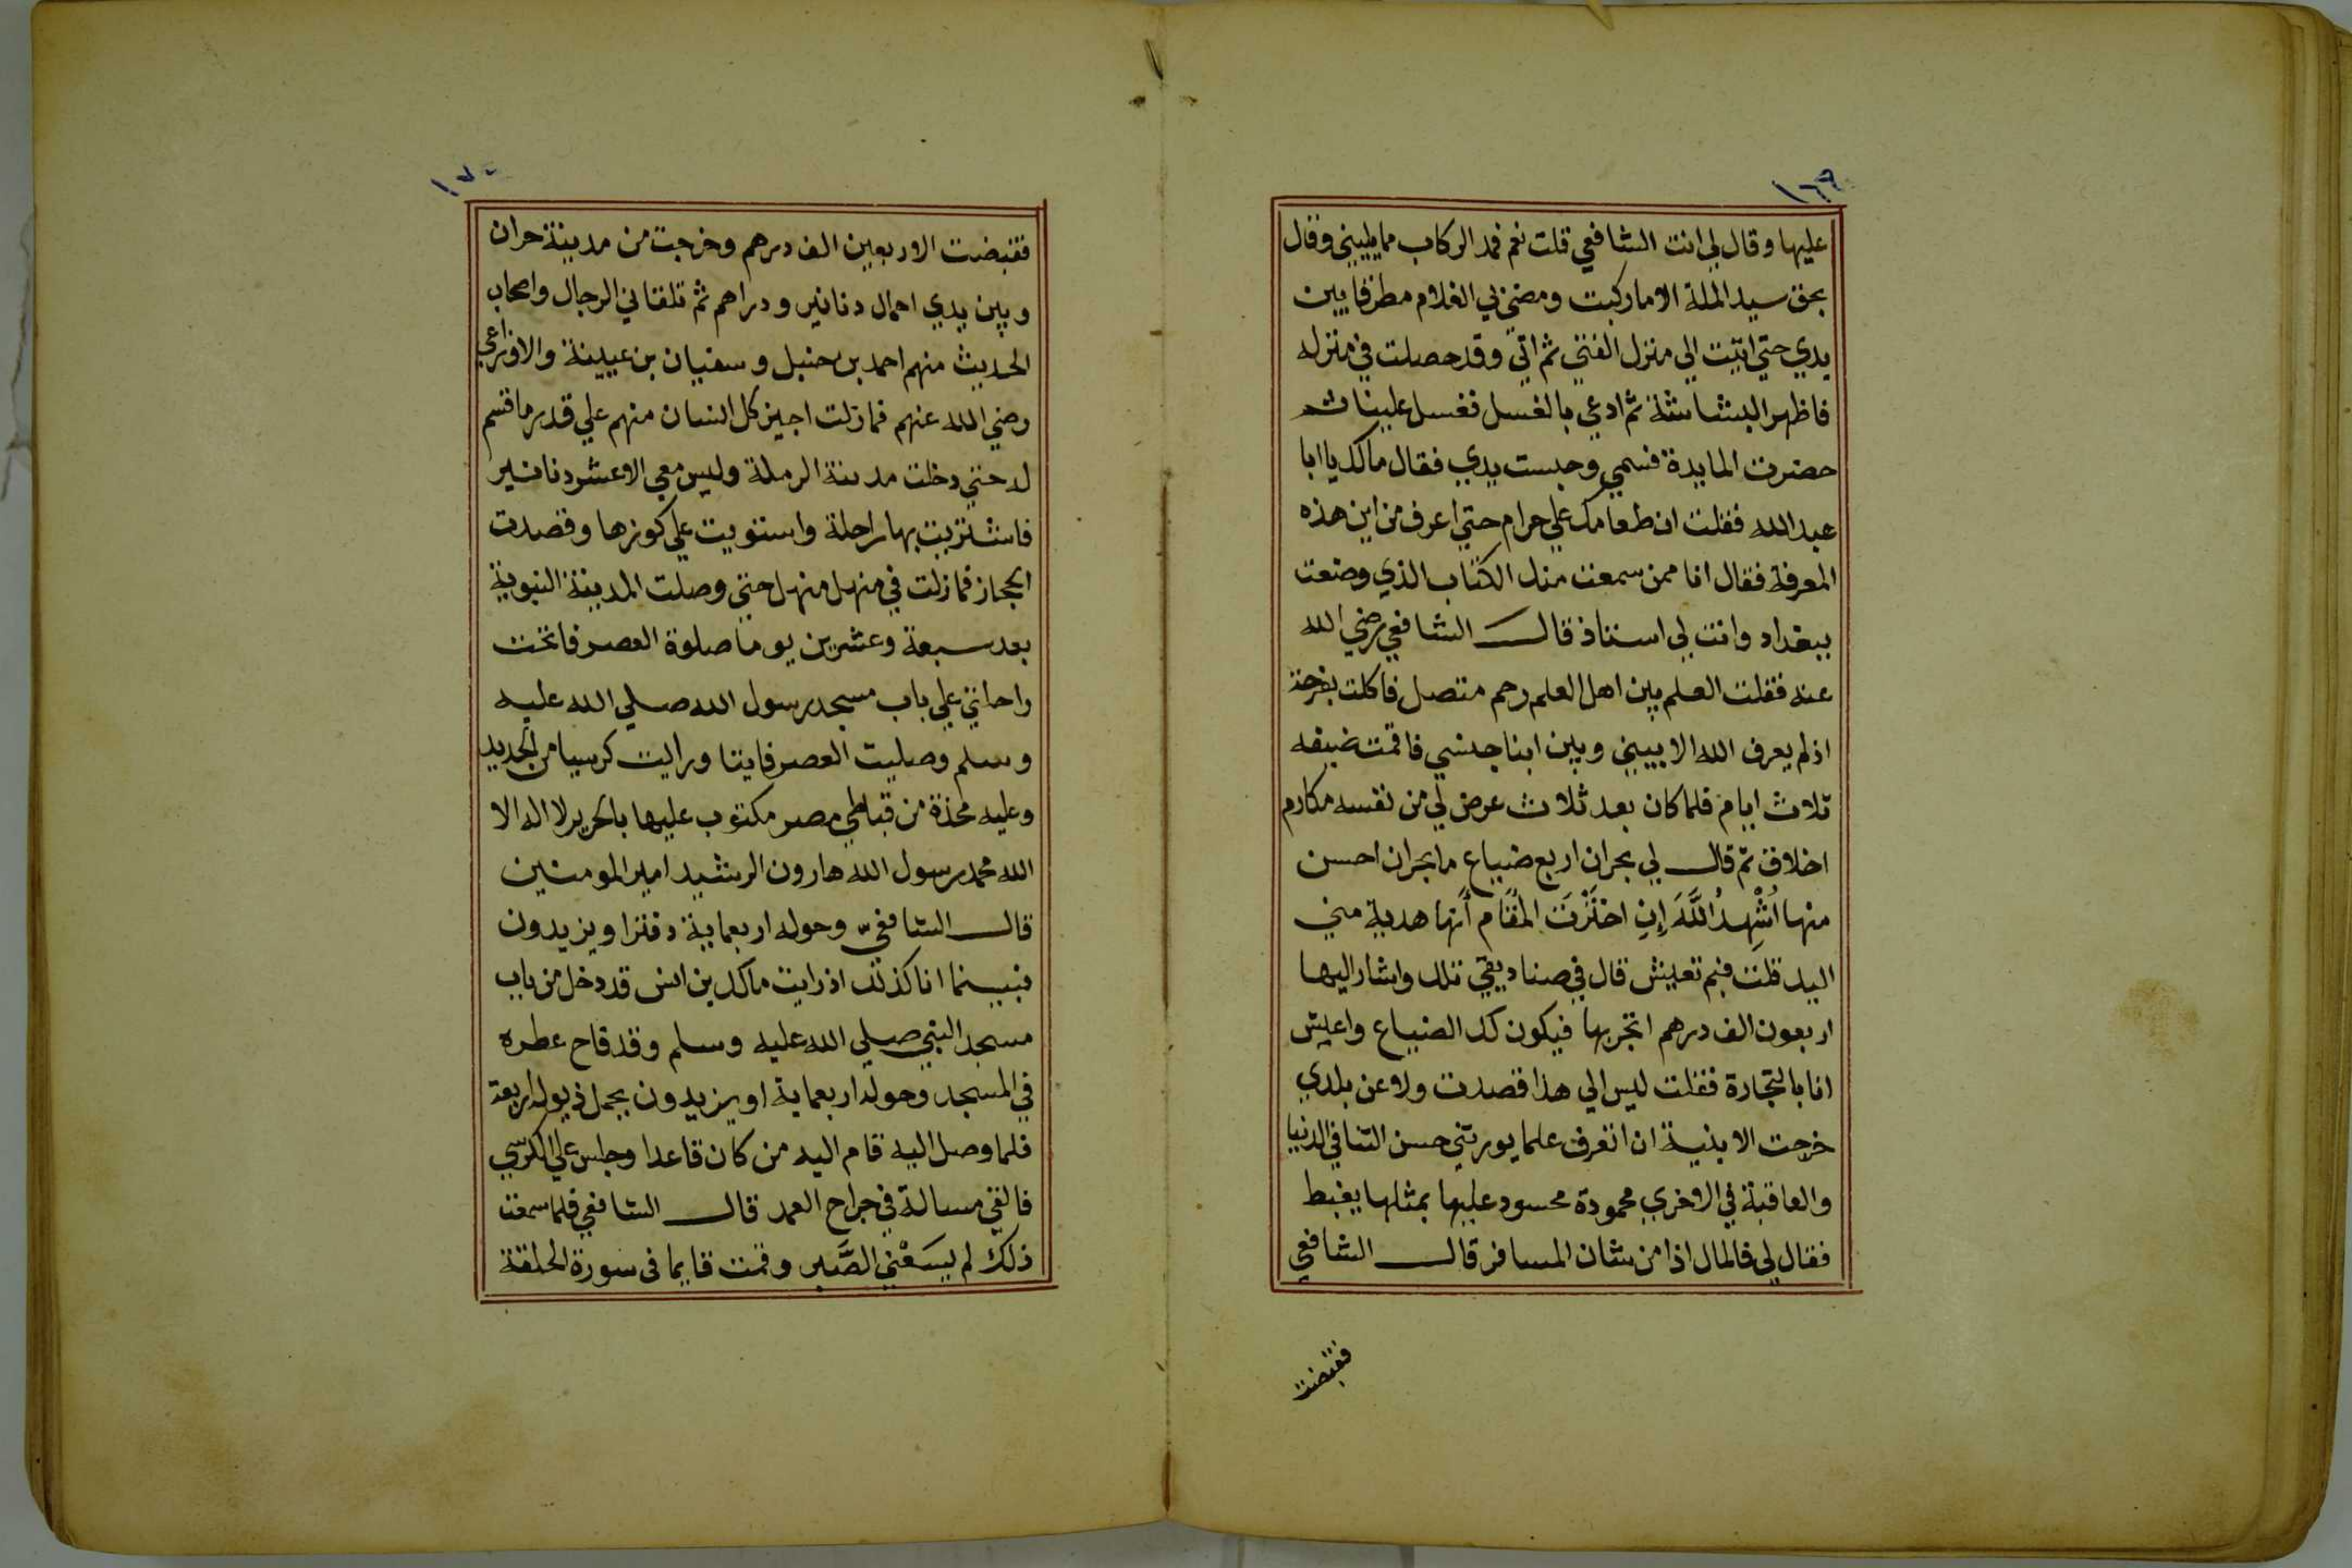 ١٦٩
عليها وقال لي انت الشافعي قلت نعم فمد الركاب مما يليني وقال
بحق سيد الملة الاما ركبت ومضي بي الغلام مطرقا بين
يدي حتي اتيت الي منزل الفتي ثم اتي وقد حصلت في منزله
فاظهر البشاشة ثم ادعي بالغسل فغسل علينا ثم
حضرت المايدة فسمي وحبست يدي فقال مالك يا ابا
عبد الله فقلت ان طعامك علي حرام حتي اعرف من اين هذه
المعرفة فقال انا ممن سمعت منك الكتاب الذي وضعت
ببغداد وانت لي استاذ قال الشافعي رضي الله
عنه فقلت العلم بين اهل العلم رحم متصل فاكلت بفرحة
اذ لم يعرف الله الا بيني وبين ابنا جنسي فاقمت ضيفه
ثلاث ايام فلما كان بعد ثلاث عرض لي من نفسه مكارم
اخلاق ثم قال لي بحران اربع ضياع ما بحران احسن
منها اُشْهِدُ اللَّهَ إِنِ اخْتَرْتَ المُقَام أنها هدية مني
اليك قلت فبم تعيش قال في صناديقي تلك واشار اليها
اربعون الف درهم اتجر بها فيكون لك الضياع واعيش
انا بالتجارة فقلت ليس الي هذا قصدت ولا عن بلدي
خرجت الا بنية ان اتعرف علما يورثني حسن الثنا في الدنيا
والعاقبة في الاخري محمودة محسود عليها بمثلها يغبط
فقال لي فالمال اذا من شان المسافر قال الشافعي
فقبضت
١٧٠
فقبضت الاربعين الف درهم وخرجت من مدينة حران
وبين يدي احمال دنانير ودراهم ثم تلقاني الرجال واصحاب
الحديث منهم احمد بن حنبل وسفيان بن عيينة والاوزاعي
رضي الله عنهم فما زلت اجيز كل انسان منهم علي قدر ما قسم
له حتي دخلت مدينة الرملة وليس معي الا عشر دنانير
فاشتريت بها راحلة واستويت علي كورها وقصدت
الحجاز فما زلت في منهل منهل حتي وصلت المدينة النبوية
بعد سبعة وعشرين يوما صلوة العصر فانخت
راحلتي علي باب مسجد رسول الله صلي الله عليه
وسلم وصليت العصر فايتا ورايت كرسيا من الحديد
وعليه مخدة من قباطي مصر مكتوب عليها بالحرير لا اله الا
الله محمد رسول الله هارون الرشيد امير المومنين
قال الشافعي وحوله اربعماية دفترا ويزيدون
فبينما انا كذلك اذ رايت مالك بن انس قد دخل من باب
مسجد النبي صلي الله عليه وسلم وقد فاح عطره
في المسجد وحوله اربعماية او يزيدون يحمل ذيوله اربعة
فلما وصل اليه قام اليه من كان قاعدا وجلس علي الكرسي
فالقي مسالة في جراح العمد قال الشافعي فلما سمعت
ذلك لم يسَعْني الصَّبر وقمت قايما في سورة الحلقة